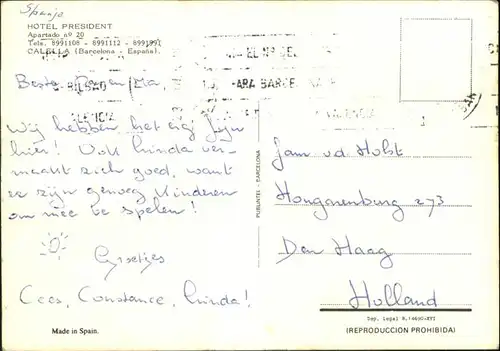 Spanje
HOTEL PRESIDENT
Apartado nº 20
Tels. 8991108 - 8991112 - 899199
CALELLA (Barcelona - España).
Beste Oma,
BILBAO
ARA BARCE
Wij hebben het fijn
hier! Ook Linda ver-
maakt zich goed, want
er zijn genoeg kinderen
om mee te spelen!
Groetjes
Cees, Constance, Linda!
Made in Spain.
PUBLINTEL - BARCELONA
Jan vd Holst
Hongarenburg 273
Den Haag
Holland
Dep. Legal B.14690-XVI
(REPRODUCCION PROHIBIDA)